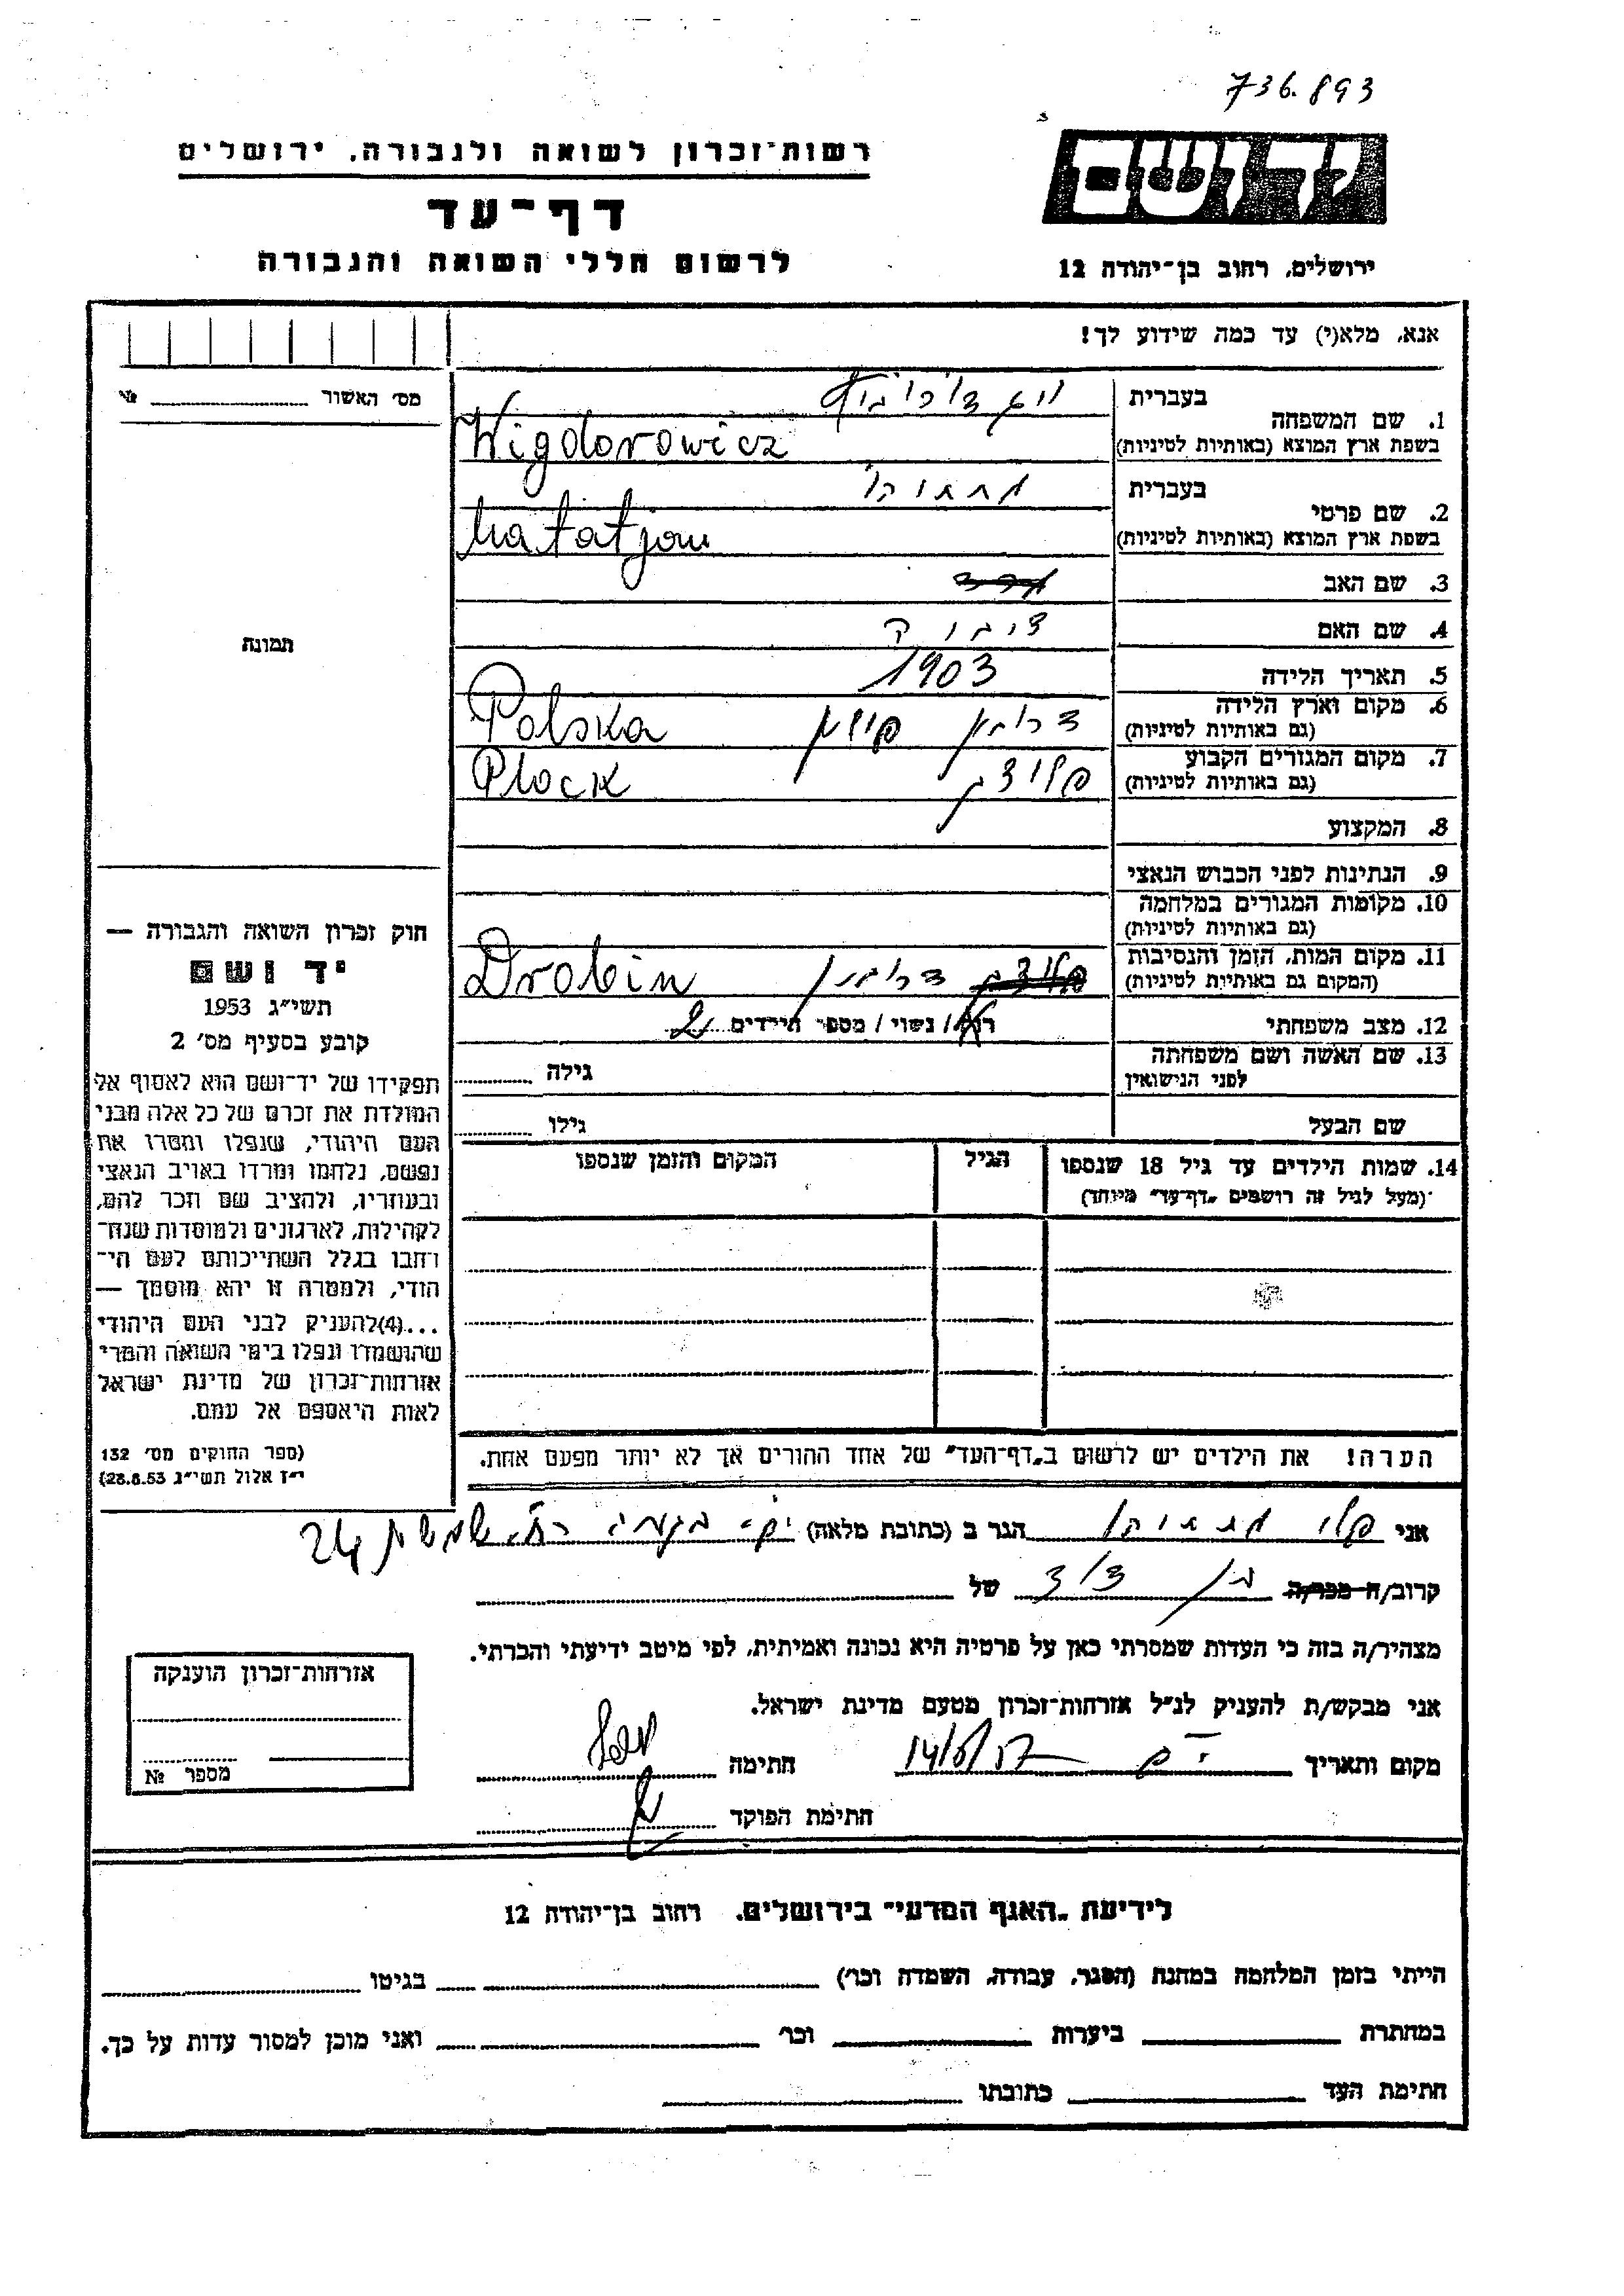 736.893
רשות־זכרון לשואה ולגבורה, ירושלים
יד ושם
דף־עד
לרשום חללי השואה והגבורה
ירושלים, רחוב בן־יהודה 12
אנא, מלא(י) עד כמה שידוע לך!
מס׳ האשור № 
בעברית
1. שם המשפחה
בשפת ארץ המוצא (באותיות לטיניות) Wigdorowicz
בעברית מתתיהו
2. שם פרטי
בשפת ארץ המוצא (באותיות לטיניות) Matatjou
3. שם האב
4. שם האם
5. תאריך הלידה 1903
6. מקום וארץ הלידה דרובין פולין Polska
(גם באותיות לטיניות)
7. מקום המגורים הקבוע פלוצק Plock
(גם באותיות לטיניות)
8. המקצוע
9. הנתינות לפני הכבוש הנאצי
10. מקומות המגורים במלחמה
(גם באותיות לטיניות)
11. מקום המות, הזמן והנסיבות פלוצק דרובין Drobin
(המקום גם באותיות לטיניות)
12. מצב משפחתי רוק/ נשוי / מספר הילדים
13. שם האשה ושם משפחתה גילה
לפני הנישואין
שם הבעל גילו
14. שמות הילדים עד גיל 18 שנספו הגיל המקום והזמן שנספו
(מעל לגיל זה רושמים „דף־עד״ מיוחד)
הערה! את הילדים יש לרשום ב„דף־העד״ של אחד ההורים אך לא יותר מפעם אחת.
תמונה
חוק זכרון השואה והגבורה —
יד ושם
תשי״ג 1953
קובע בסעיף מס׳ 2
תפקידו של יד־ושם הוא לאסוף אל
המולדת את זכרם של כל אלה מבני
העם היהודי, שנפלו ומסרו את
נפשם, נלחמו ומרדו באויב הנאצי
ובעוזריו, ולהציב שם וזכר להם,
לקהילות, לארגונים ולמוסדות שנח־
רחבו בגלל השתייכותם לעם הי־
הודי, ולמטרה זו יהא מוסמך —
...(4)להעניק לבני העם היהודי
שהושמדו ונפלו בימי השואה והמרי
אזרחות־זכרון של מדינת ישראל
לאות היאספם אל עמם.
(ספר החוקים מס׳ 132
י״ז אלול תשי״ג 28.8.53)
אני מתתיהו הגר ב (כתובת מלאה) 24
קרוב/ה מכר/ה בן דוד של
מצהיר/ה בזה כי העדות שמסרתי כאן על פרטיה היא נכונה ואמיתית, לפי מיטב ידיעתי והכרתי.
אני מבקש/ת להעניק לנ״ל אזרחות־זכרון מטעם מדינת ישראל.
מקום ותאריך חתימה
חתימת הפוקד
אזרחות־זכרון הוענקה
מספר №
לידיעת „האגף המדעי״ בירושלים, רחוב בן־יהודה 12
הייתי בזמן המלחמה במחנה (הסגר, עבודה, השמדה וכר׳) בגיטו
במחתרת ביערות וכר׳ ואני מוכן למסור עדות על כך.
חתימת העד כתובתו